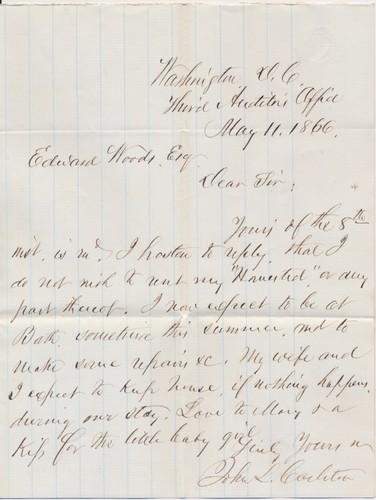 Washington D.C.
Third Auditor's Office
May 11. 1866.
Edward Woods, Esq.
Dear Sir:
Yours of the 8th
inst. is rec'd. I hasten to reply, that I
do not wish to rent my "Homestead" or any
part thereof. I now expect to be at
Bath, sometime this summer, and to
make some repairs &c. My wife and
I expect to keep house, if nothing happens,
during our stay. Love to Mary & a
Kiss for the little baby girl.
Yours
John L.